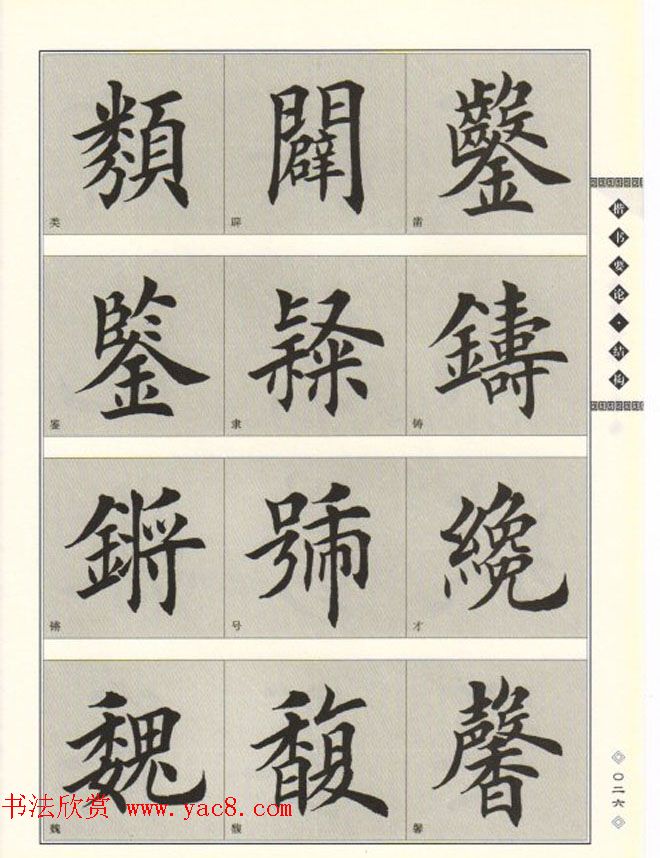 類 闢 鑿
类 辟 凿
鑒 隸 鑄
鉴 隶 铸
鏘 號 纔
锵 号 才
魏 馥 馨
魏 馥 馨
楷书要论·结构
〇二六
书法欣赏 www.yac8.com